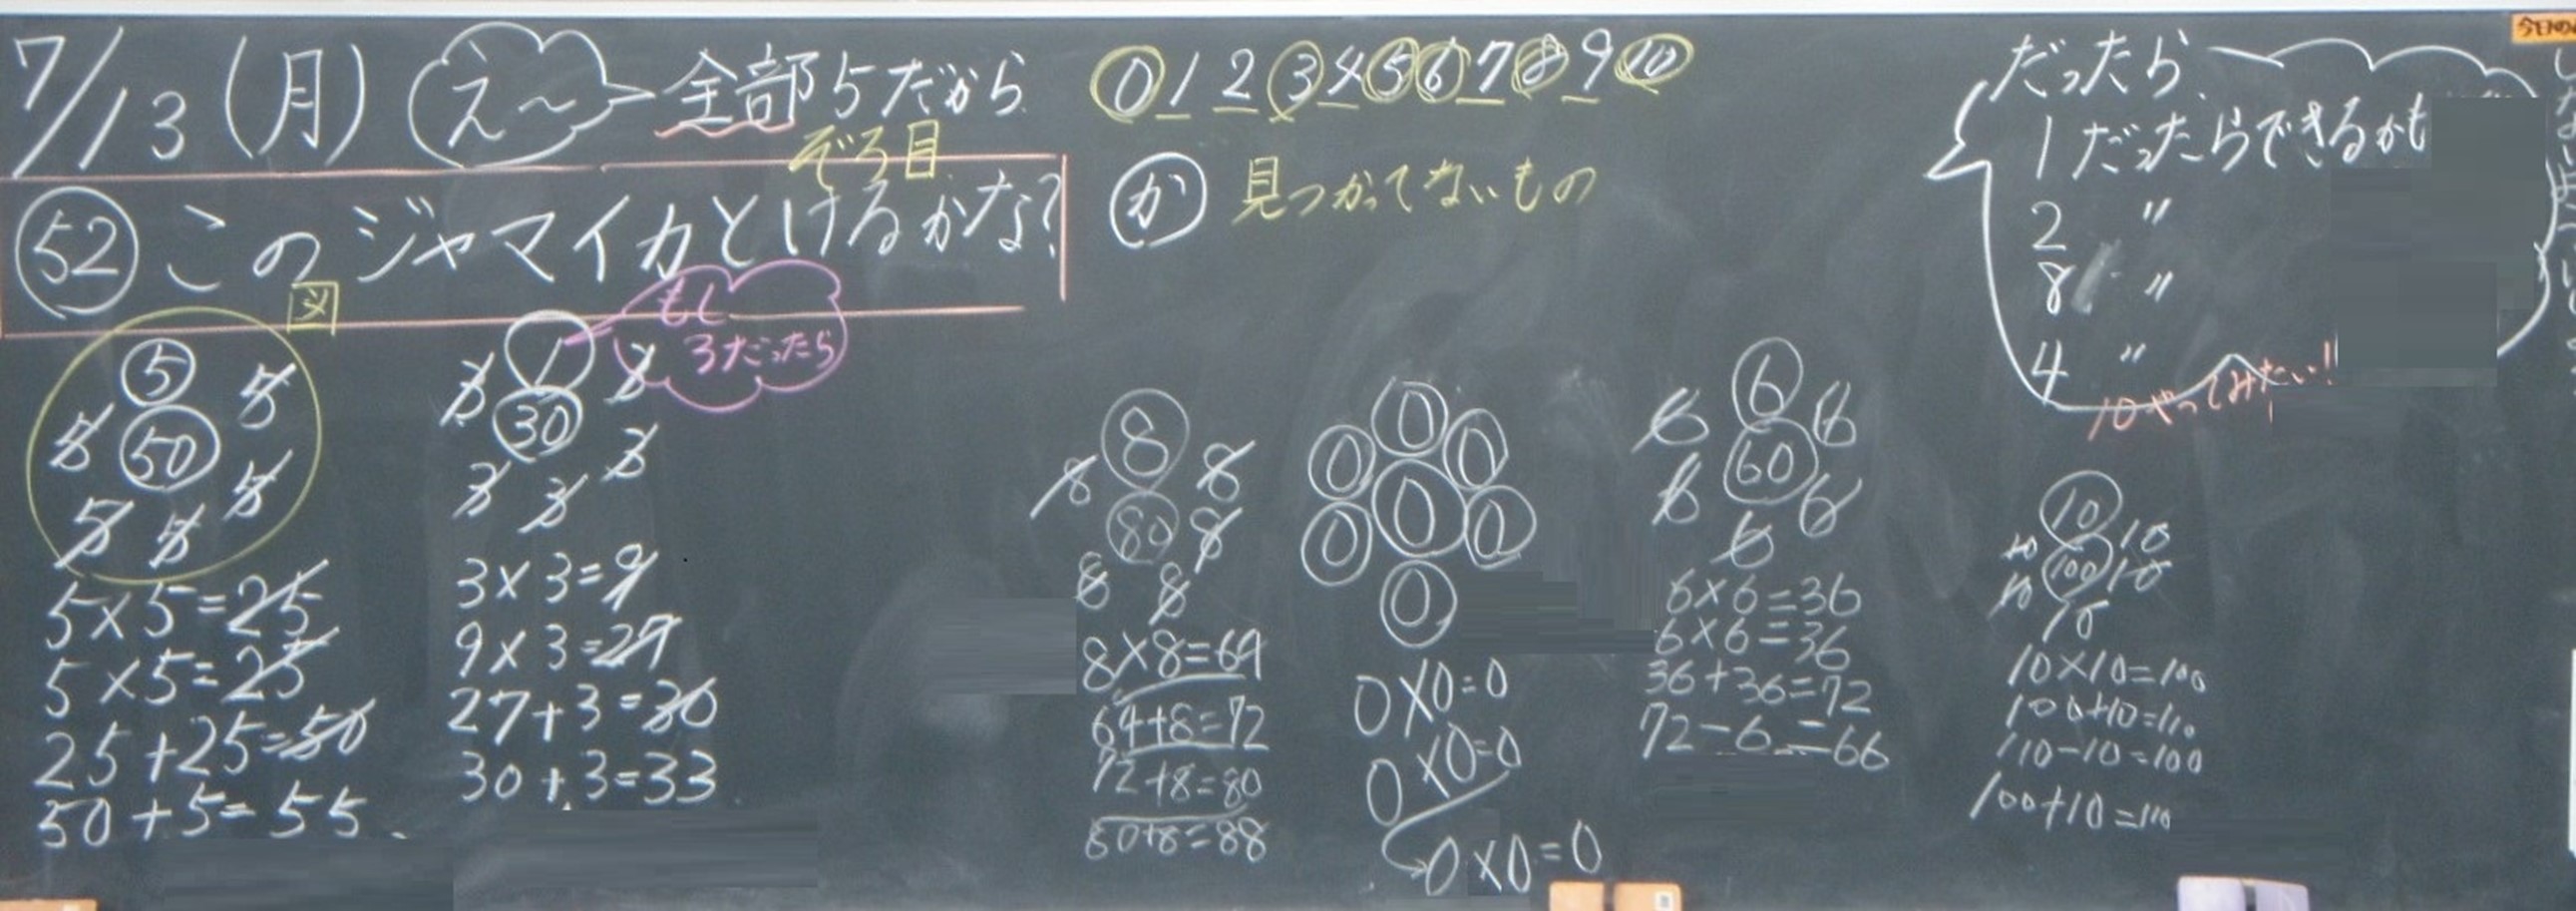 7/13(月)
え〜
全部5だから
ぞろ目
52 このジャマイカとけるかな?
図
5
50
5 5 5 5 5
5×5=25
5×5=25
25+25=50
50+5=55
もし
3だったら
1
30
3 3 3 3 3
3×3=9
9×3=27
27+3=30
30+3=33
0 1 2 3 4 5 6 7 8 9 10
か 見つかってないもの
8
80
8 8 8 8 8
8×8=64
64+8=72
72+8=80
80+8=88
0
0 0
0
0 0
0
0×0=0
0×0=0
0×0=0
6
60
6 6 6 6 6
6×6=36
6×6=36
36+36=72
72-6=66
だったら
1だったらできるかも
2 〃
8 〃
4 〃
10やってみたい!!
10
100
10 10 10 10 10
10×10=100
100+10=110
110-10=100
100+10=110